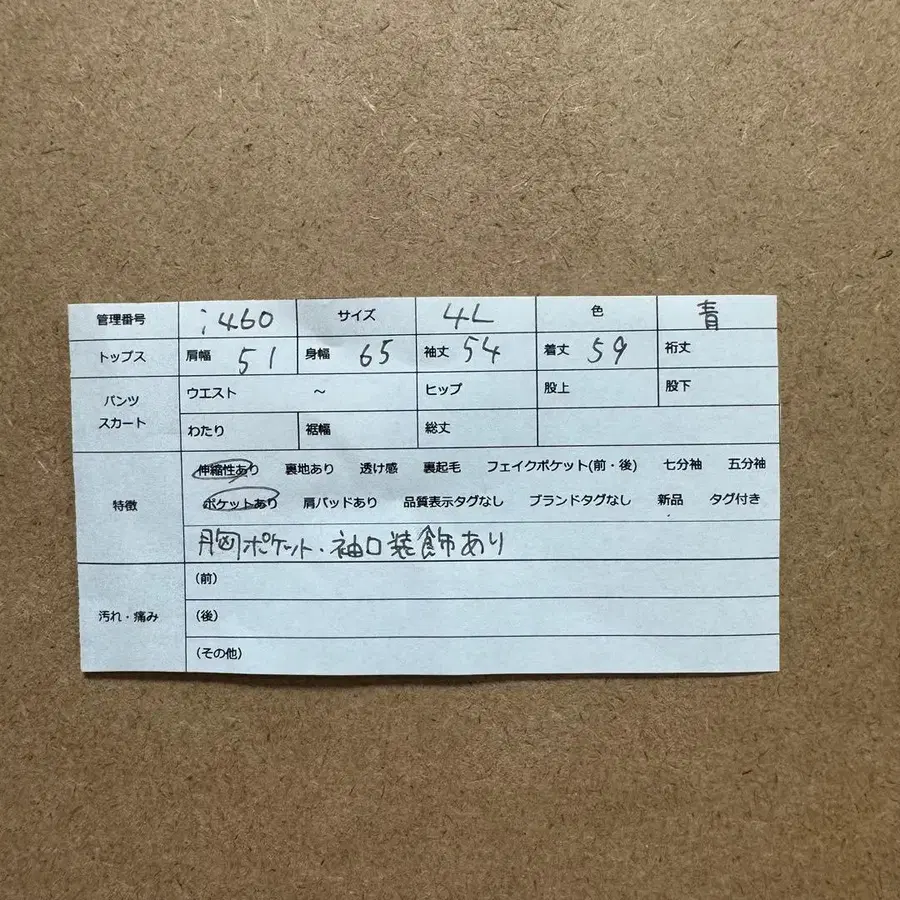 管理番号 i460 サイズ 4L 色 青
トップス 肩幅 51 身幅 65 袖丈 54 着丈 59 裄丈
パンツ スカート ウエスト ～ ヒップ 股上 股下
わたり 裾幅 総丈
特徴 伸縮性あり 裏地あり 透け感 裏起毛 フェイクポケット(前・後) 七分袖 五分袖
ポケットあり 肩パッドあり 品質表示タグなし ブランドタグなし 新品 タグ付き
胸ポケット・袖口装飾あり
汚れ・痛み (前)
(後)
(その他)